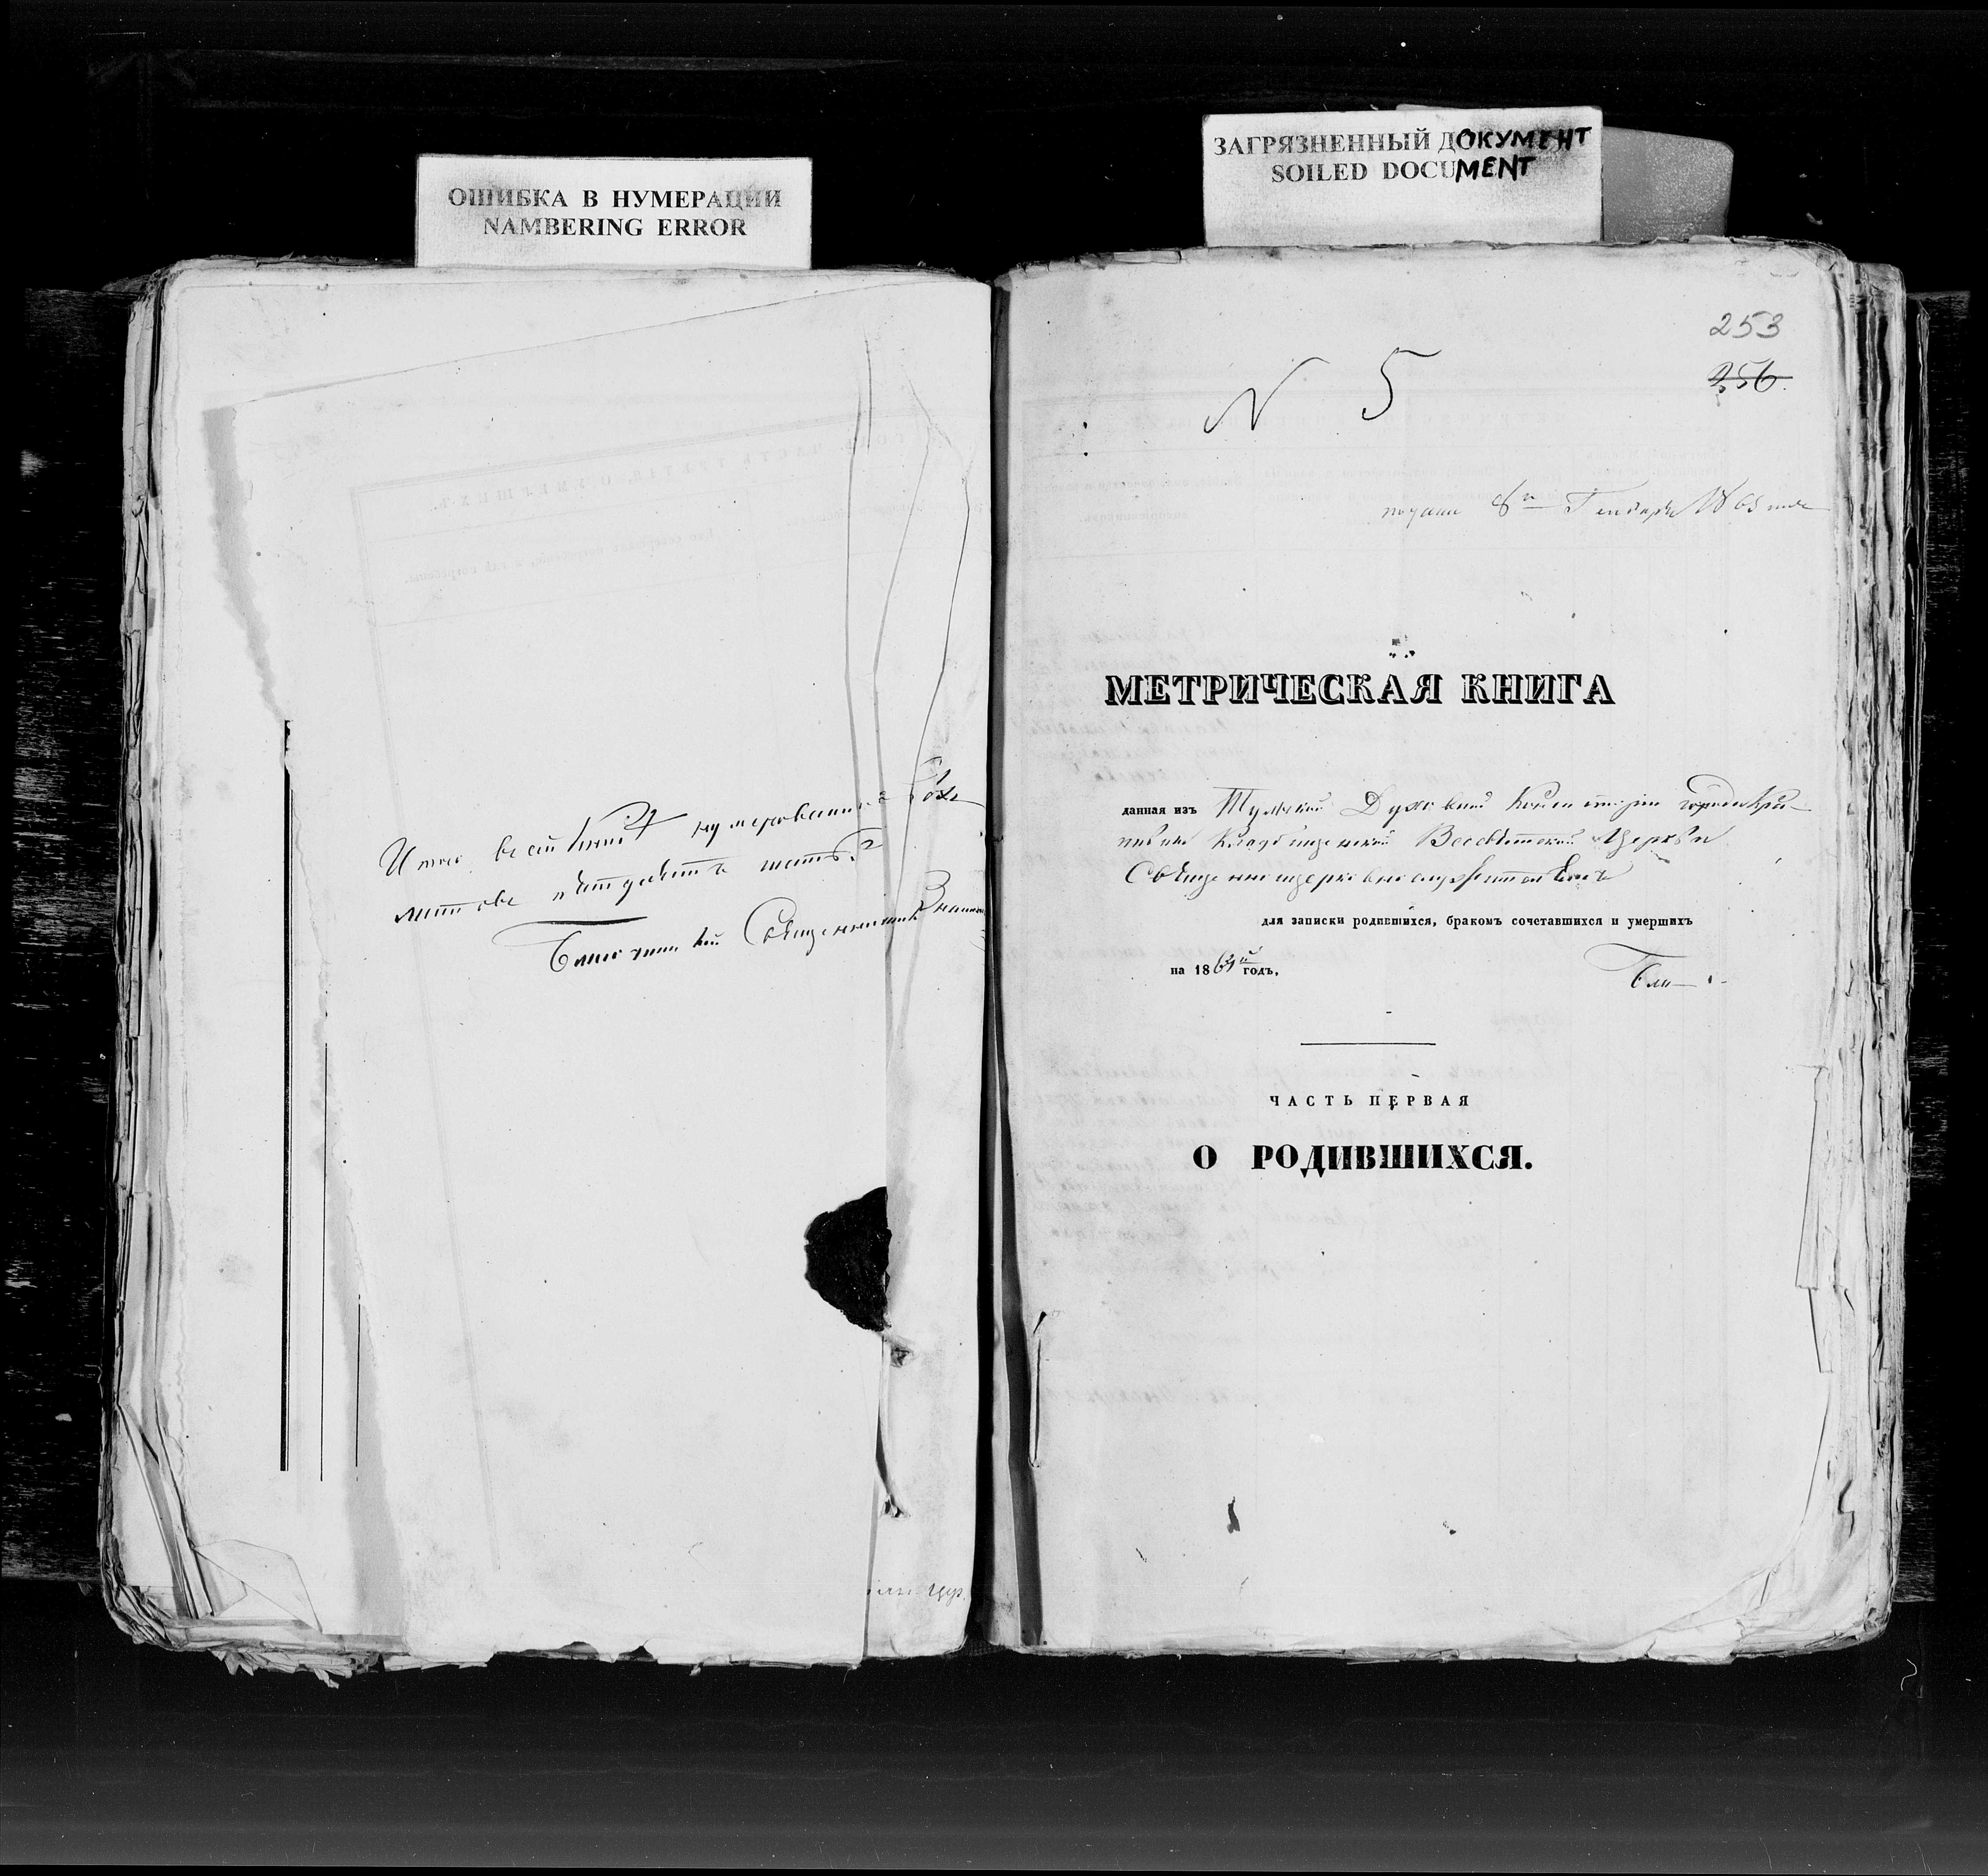 ОШИБКА В НУМЕРАЦИИ
NAMBERING ERROR
ЗАГРЯЗНЕННЫЙ ДОКУМЕНТ
SOILED DOCUMENT
Итого въ сей книгѣ нумерованныхъ
листовъ пятьдесятъ шесть.
Благочинный Священникъ
253
256.
N 5
подана 8го Генваря 1865 года
МЕТРИЧЕСКАЯ КНИГА
данная изъ Тульской Духовной Консисторіи города Кра-
пивны Кладбищенской Всесвятской Церкви
Священноцерковнослужителямъ
для записки родившихся, бракомъ сочетавшихся и умершихъ
на 1864й годъ.
Бла-
ЧАСТЬ ПЕРВАЯ
О РОДИВШИХСЯ.